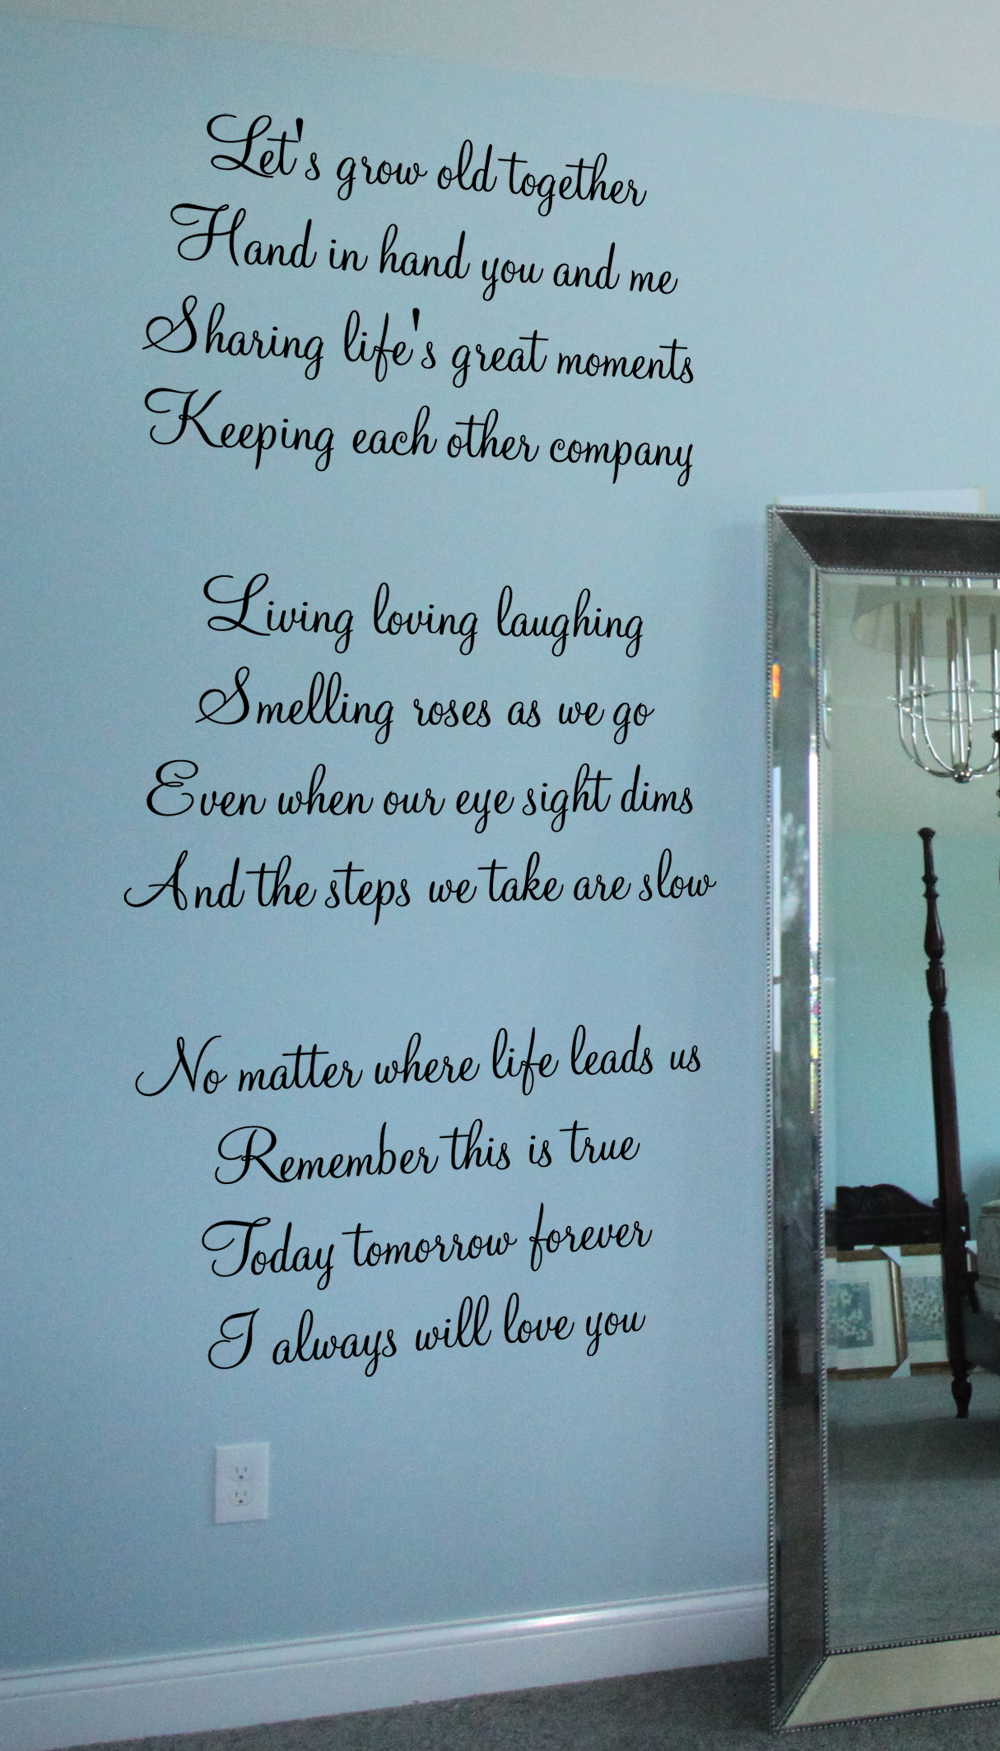 Let's grow old together
Hand in hand you and me
Sharing life's great moments
Keeping each other company
Living loving laughing
Smelling roses as we go
Even when our eye sight dims
And the steps we take are slow
No matter where life leads us
Remember this is true
Today tomorrow forever
I always will love you